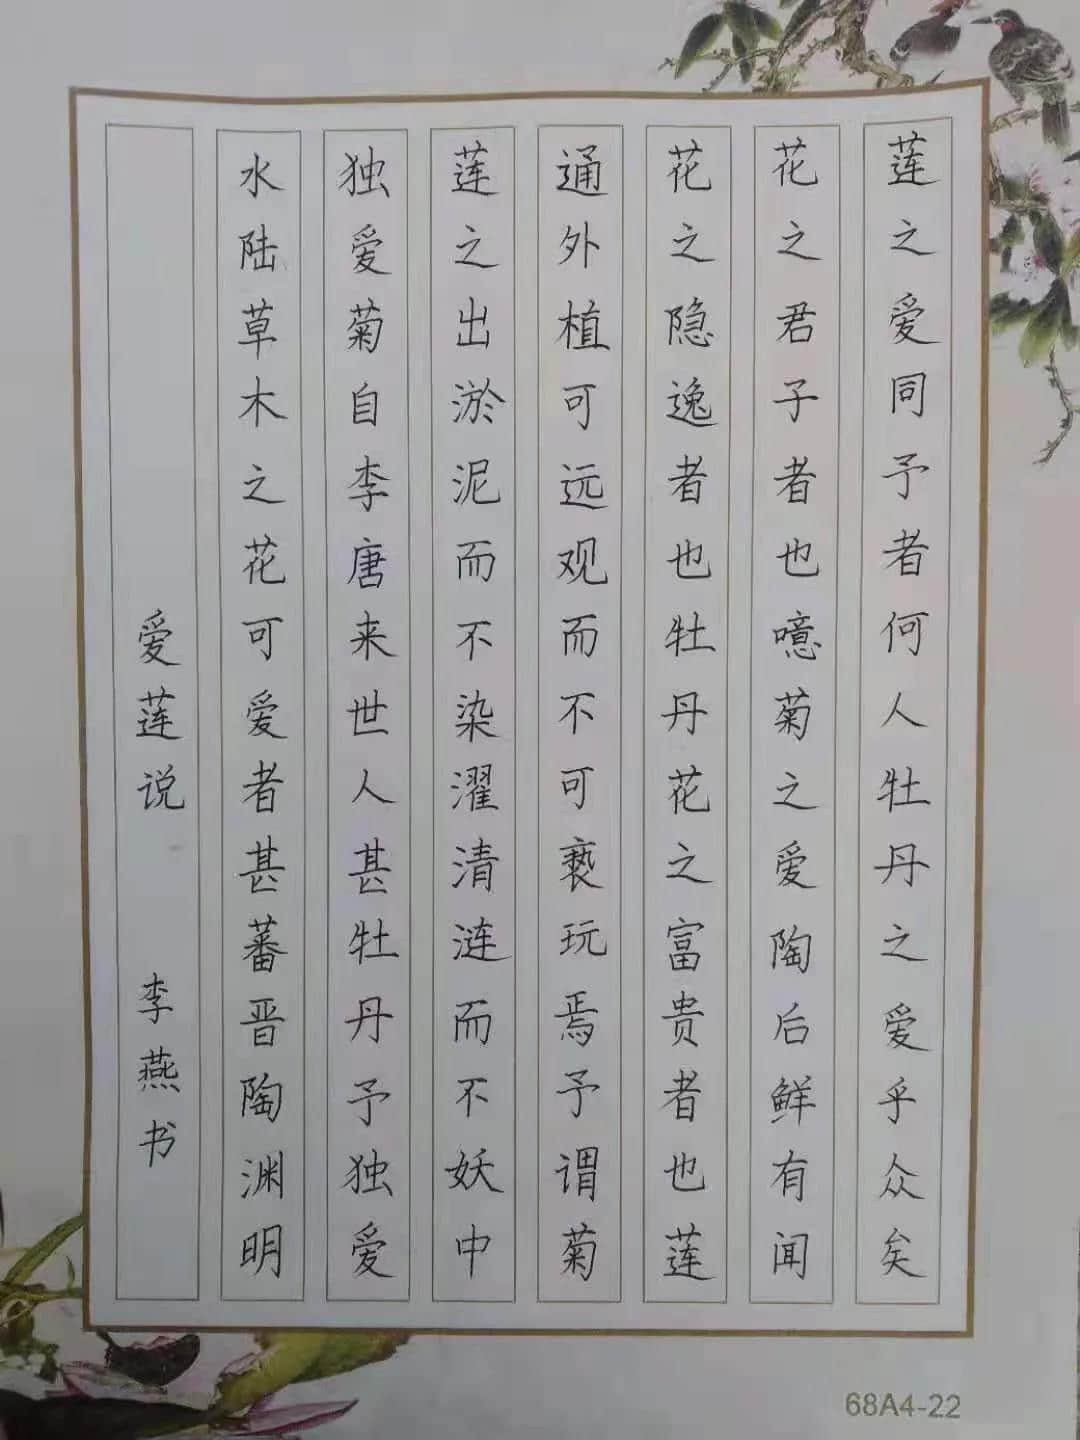 爱莲说 李燕书
水陆草木之花可爱者甚蕃晋陶渊明
独爱菊自李唐来世人甚牡丹予独爱
莲之出淤泥而不染濯清涟而不妖中
通外植可远观而不可亵玩焉予谓菊
花之隐逸者也牡丹花之富贵者也莲
花之君子者也噫菊之爱陶后鲜有闻
莲之爱同予者何人牡丹之爱乎众矣
68A4-22